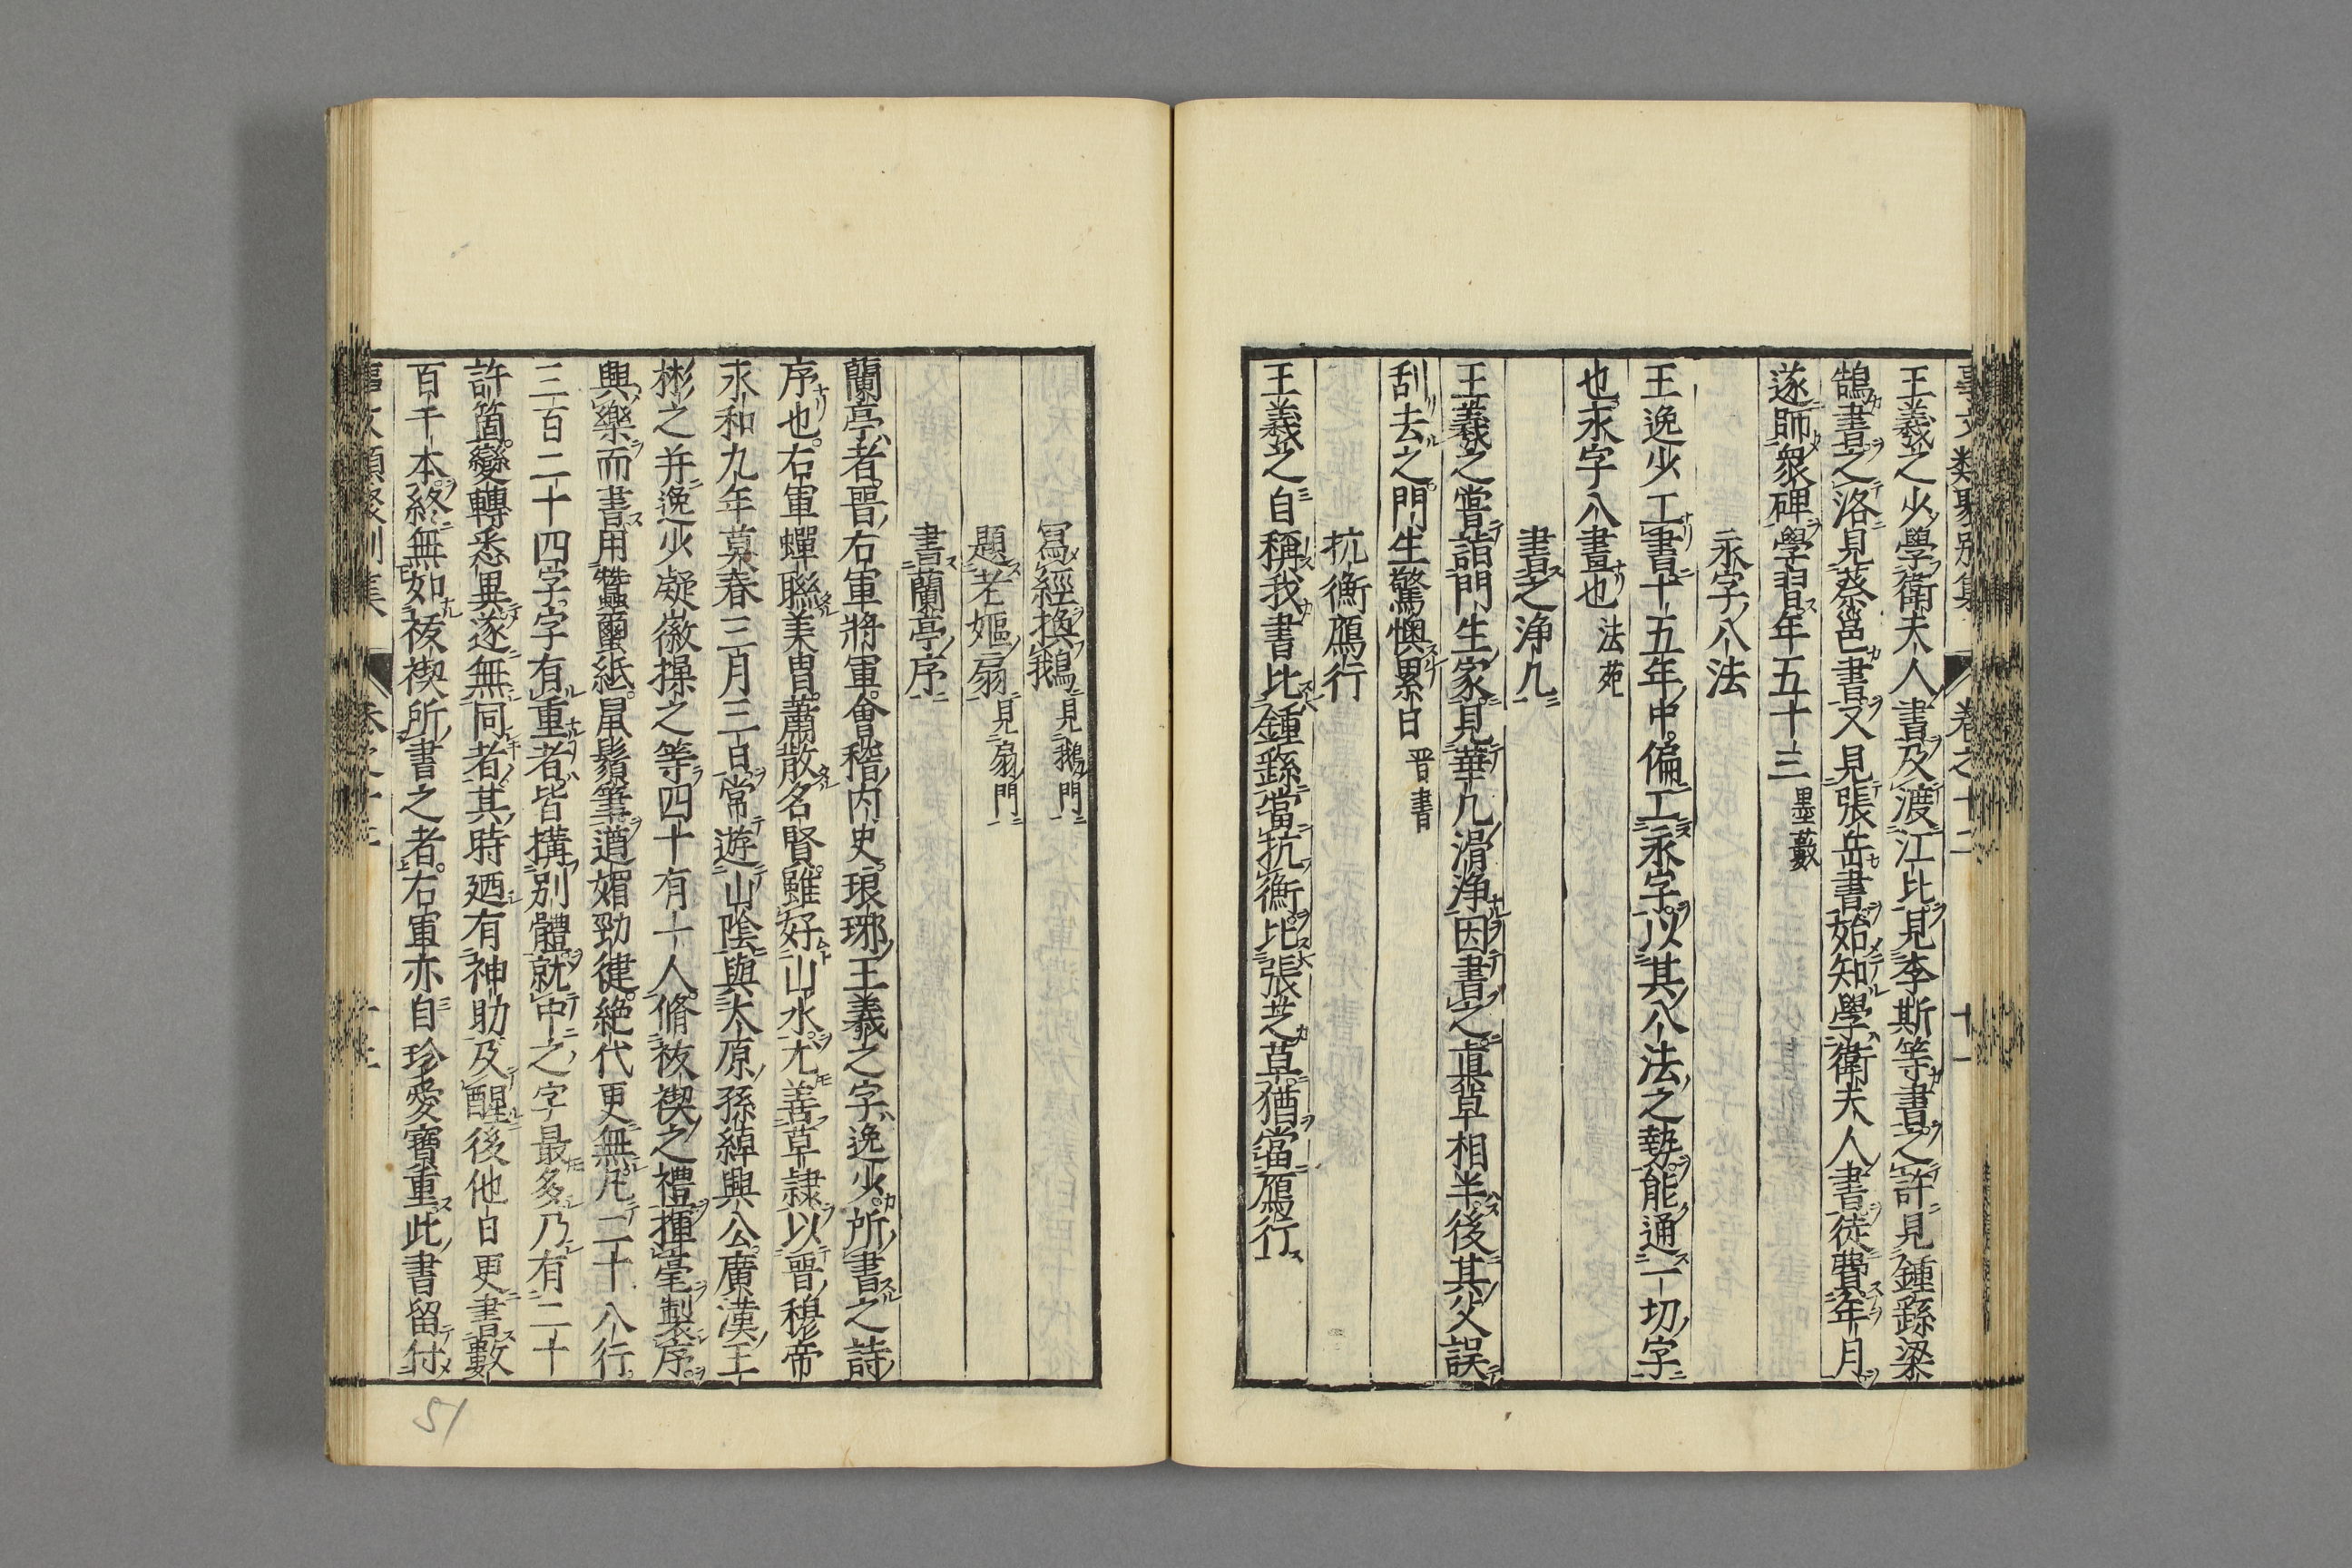 王羲之少學衛夫人書及渡江比見李斯等書之許見鍾繇梁
鵠書之洛見蔡邕書又見張岳書始知學衛夫人書徒費年月
遂師衆碑學習年五十三墨藪
永字八法
王逸少工書十五年中偏工永字以其八法之勢能通一切字
也永字八畫也法苑
書之浄几
王羲之嘗詣門生家見華几滑浄因書之眞草相半後其父誤
刮去之門生驚懊累日晋書
抗衡鴈行
王羲之自稱我書比鍾繇當抗衡比張芝草猶當鴈行
冩經換鵝見鵝門
題老嫗扇見扇門
書蘭亭序
蘭亭者晋右軍將軍會稽内史琅琊王羲之字逸少所書之詩
序也右軍蟬聯美胄蕭散名賢雖好山水尤善草隷以晋穆帝
永和九年莫春三月三日常遊山陰與太原孫綽興公廣漢王
彬之并逸少凝徽操之等四十有一人脩祓禊之禮揮毫製序
興樂而書用蠶蠒紙鼠鬚筆遒媚勁健絶代更無凡二十八行
三百二十四字字有重者皆搆別體就中之字最多乃有二十
許箇變轉悉異遂無同者其時廼有神助及醒後他日更書數
百千本終無如祓禊所書之者右軍亦自珍愛寶重此書留付